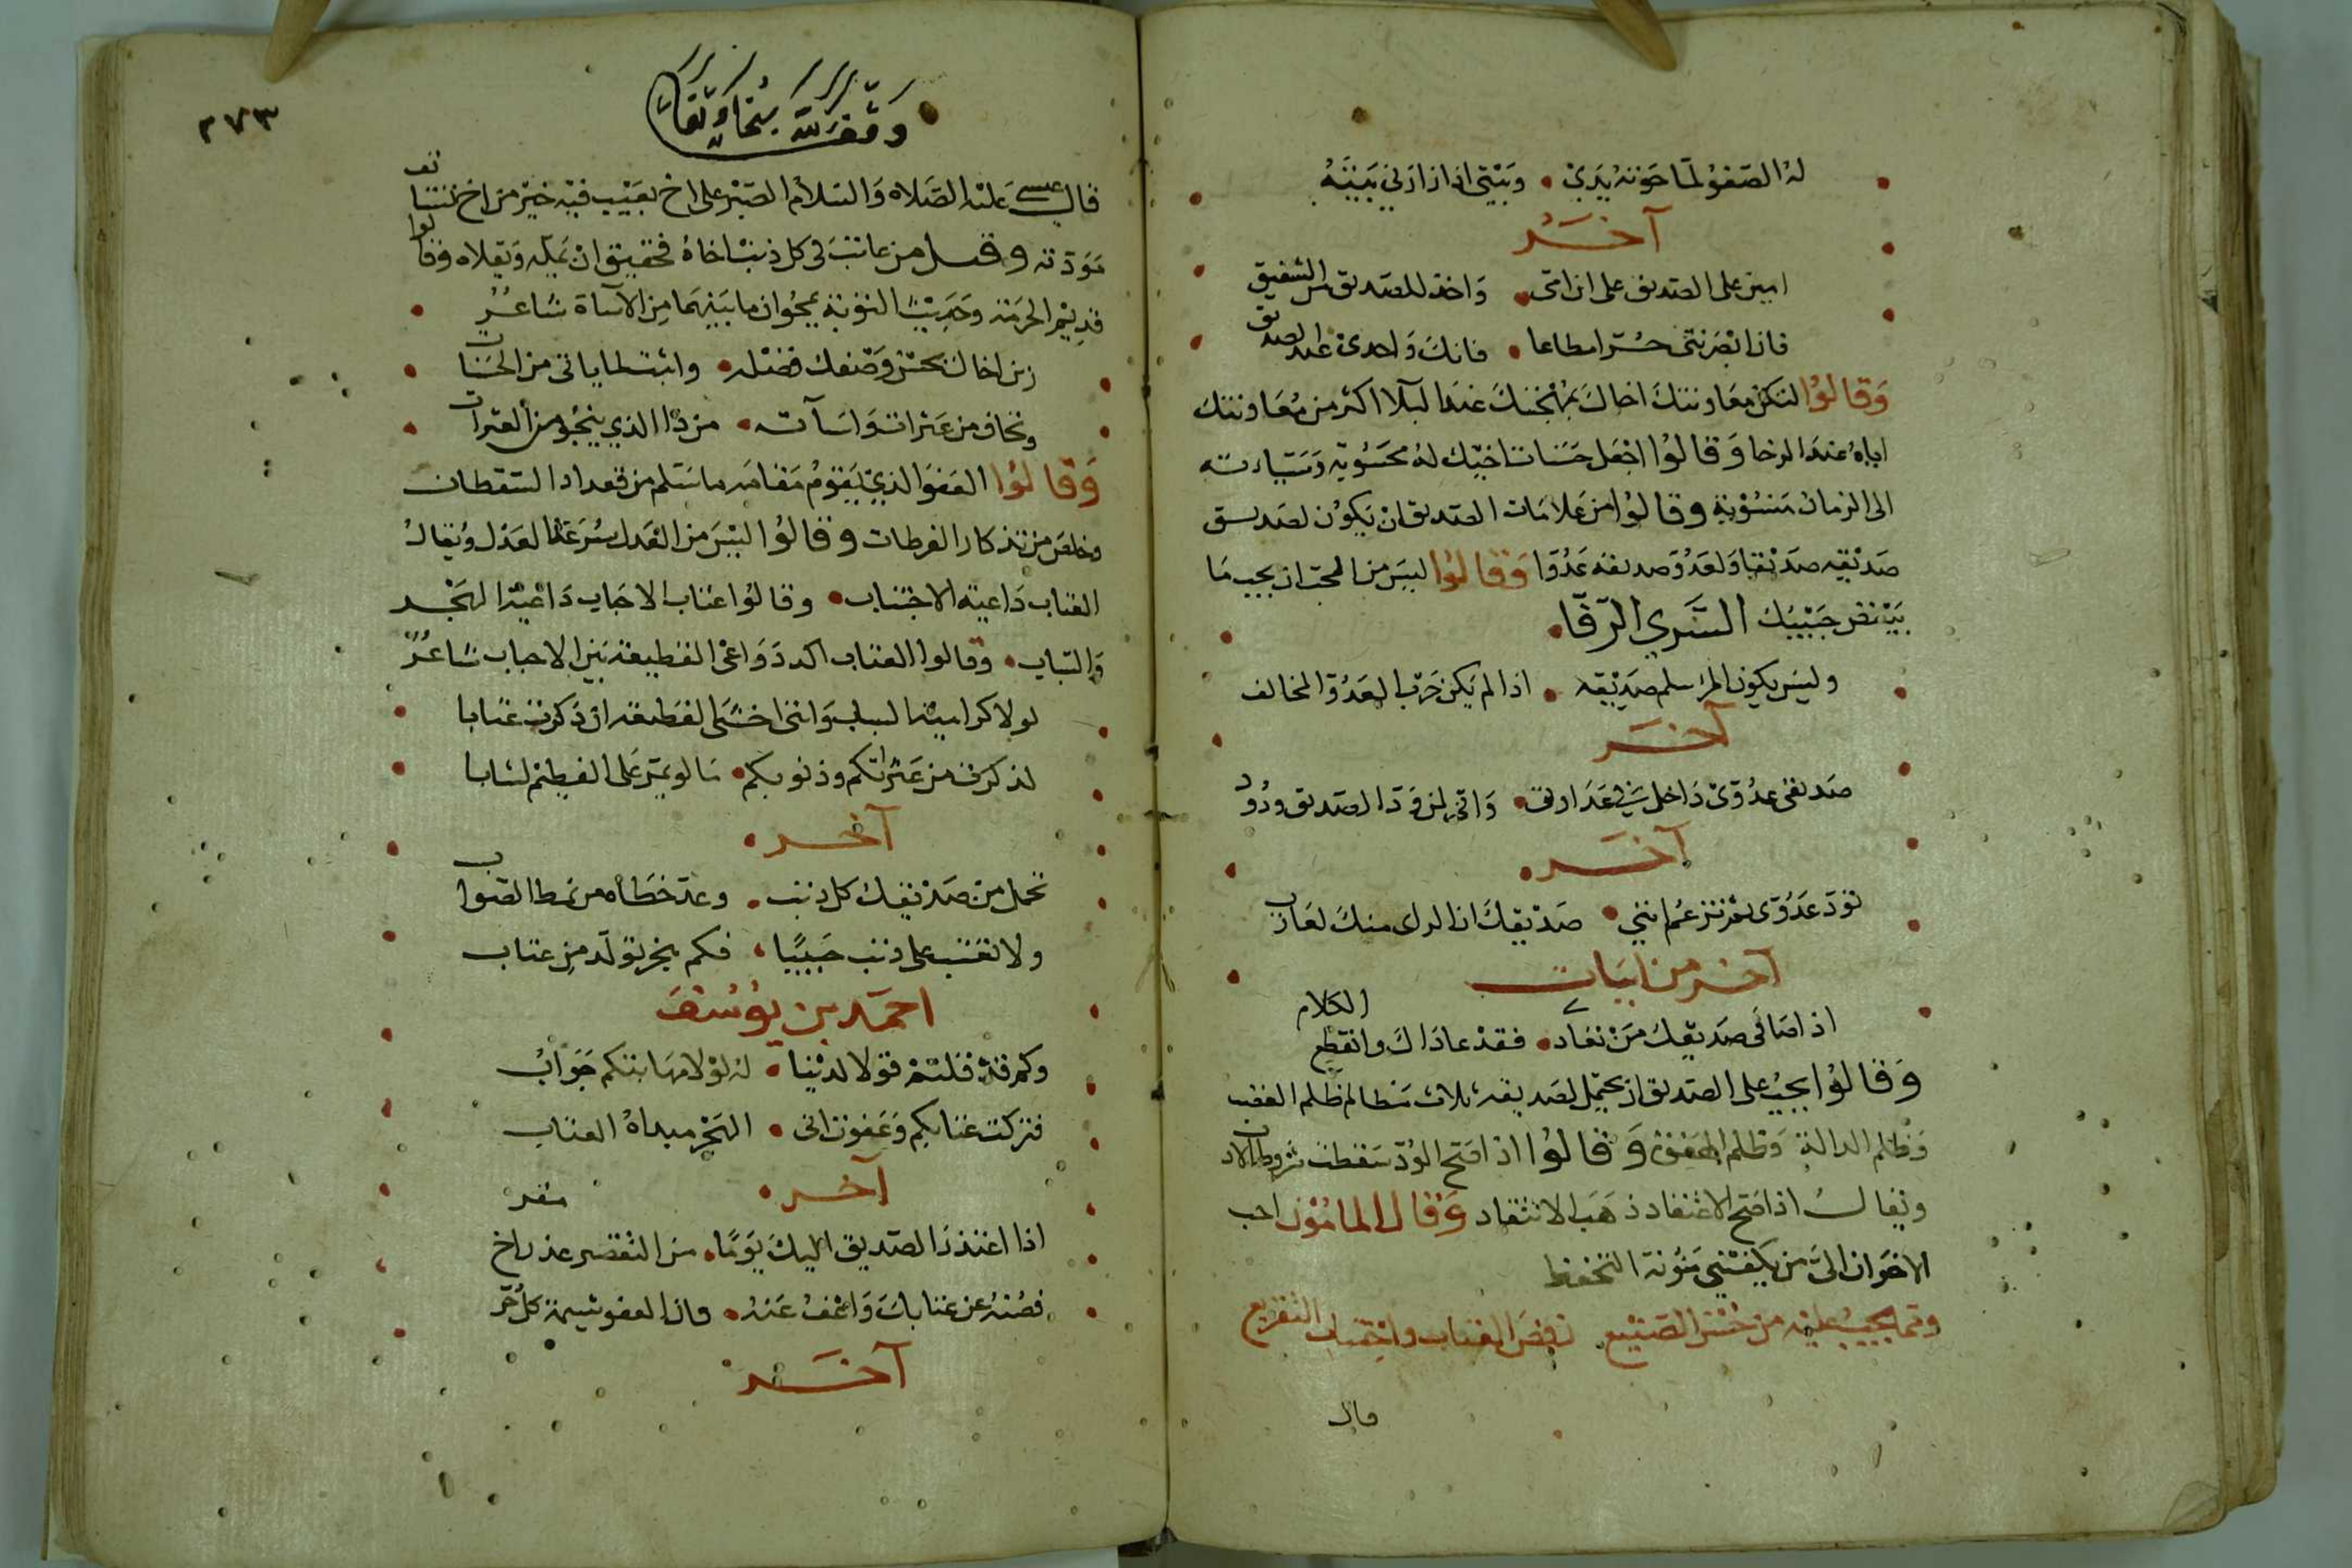 له الصفو لما حوته يدي • وبيتي اذا زارني بيته
آخر
اميز على الصديق على ابن امى • وآخذ للصديق من الشقيق
فاذا ابصرتنى حرا مطاعا • فانك واجدى عبد الصديق
وقالوا لتكن معاونتك اخاك بمهجتك عند البلا اكثر من معاونتك
اياه عند الرخا وقالوا اجعل حسنات اخيك له محسوبة وسيئاته
الى الزمان منسوبة وقالوا من علامات الصديق ان يكون لصديق
صديقه صديقا ولعدو صديقه عدوا وقالوا ليس من الحب ان يحب ما
يبغض حبيبك السري الرفا •
وليس يكون المرء سلم صديقه • اذا لم يكن حرب العدو المخالف
آخر
صديقى عدوى داخل في عداوتى • واني لمن ود الصديق ودود
آخر
تود عدوى ثم تزعم انني • صديقك ان الراى منك لعازب
آخر من ابيات
اذا صافى صديقك من تعادى • فقد عاداك وانقطع الكلام
وقالوا يجب على الصديق ان يحتمل لصديقه ثلاث مظالم ظلم الغضب
وظلم الدالة وظلم الهفوة وقالوا اذا صح الود سقطت شروط الادب
ويقال اذا صح الاعتقاد ذهب الانتقاد وقال المامون احب
الاخوان الى من يكفيني مئونة التحفظ
ومما يجب عليه من حسن الصنيع رفض العتاب واجتناب التقريع
قال
٢٧٣
وقف لله تعالى
قال عيسى عليه الصلاة والسلام الصبر على اخ بعيب فيه خير من اخ تستانف
مودته وقيل من عاتب في كل ذنب اخاه فحقيق ان يمله ويقلاه وقالوا
قديم الحرمة وحديث التوبة يمحوان ما بينهما من الاساة شاعر
زين اخاك بحسن وصفك فضله • من الحسنات
وتجاف عن عثراته واساآته • من ذا الذي ينجو من العثرات
وقالوا العفو الذي يقوم مقامه ما سلم من تعداد السقطات
وخلص من تذكار الفرطات وقالوا ليس من العدل سرعة العذل ويقال
العتاب داعية الاجتناب • وقالوا عتاب الاحباب داعية الهجر
والسباب • وقالوا العتاب اكد دواعى القطيعة بين الاحباب شاعر
لولا كراهية السباب وانني اخشى القطيعة ان ذكرت عتابا
لذكرت من عثراتكم وذنوبكم • ما لو يمر على الفطيم لشابا
آخر •
تحمل من صديقك كل ذنب • وعد خطاه من نمط الصواب
ولا تعتب على ذنب حبيبا • فكم هجر تولد من عتاب
احمد بن يوسف
وكم قد قلتم قولا لدينا • له لولا مهابتكم جواب
فتركت عتابكم وعفوت انى • الهجر مبداه العتاب
آخر •
اذا اعتذر الصديق اليك يوما • من التقصير عذر اخ مقر
فصنه عن عتابك واعف عنه • فان العفو شيمة كل حر
آخر